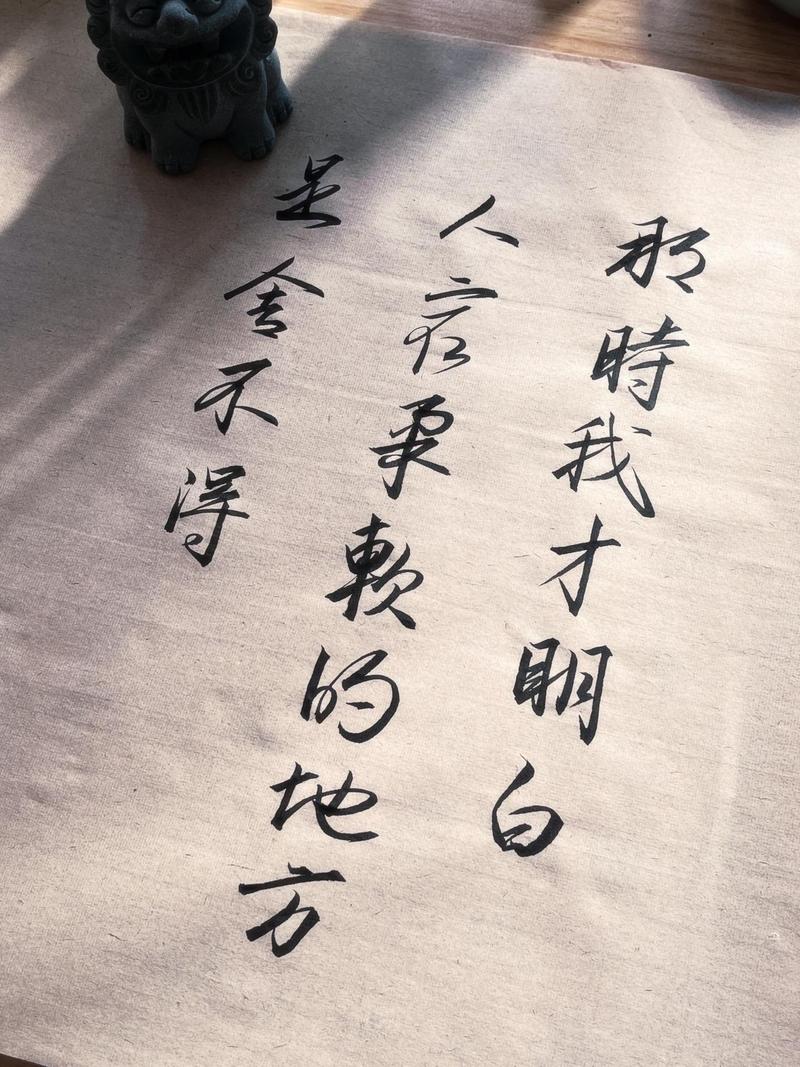 那時我才明白
人最柔軟的地方
是舍不得